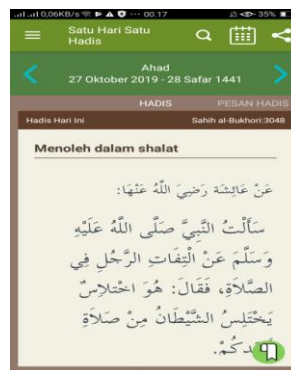 0,06KB/s ... 00.17 35%
Satu Hari Satu
Hadis
Ahad
27 Oktober 2019 - 28 Safar 1441
HADIS PESAN HADIS
Hadis Hari Ini Sahih al-Bukhori:3048
Menoleh dalam shalat
عَنْ عَائِشَة رَضِيَ اللَّهُ عَنْهَا:
سَأَلْتُ النَّبِيَّ صَلَّى اللَّهُ عَلَيْهِ
وَسَلَّمَ عَنْ الْتِفَاتِ الرَّجُلِ فِي
الصَّلَاةِ، فَقَالَ: هُوَ اخْتِلَاسٌ
يَخْتَلِسُ الشَّيْطَانُ مِنْ صَلَاةِ